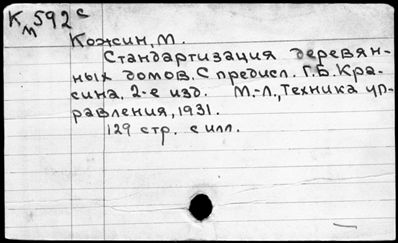 К592с
м
Кожсин, М.
Стандартизация деревян-
ных домов. С предисл. Г.Б. Кра-
сина. 2-е изд. М.-Л., Техника уп-
равления, 1931.
129 стр. с илл.